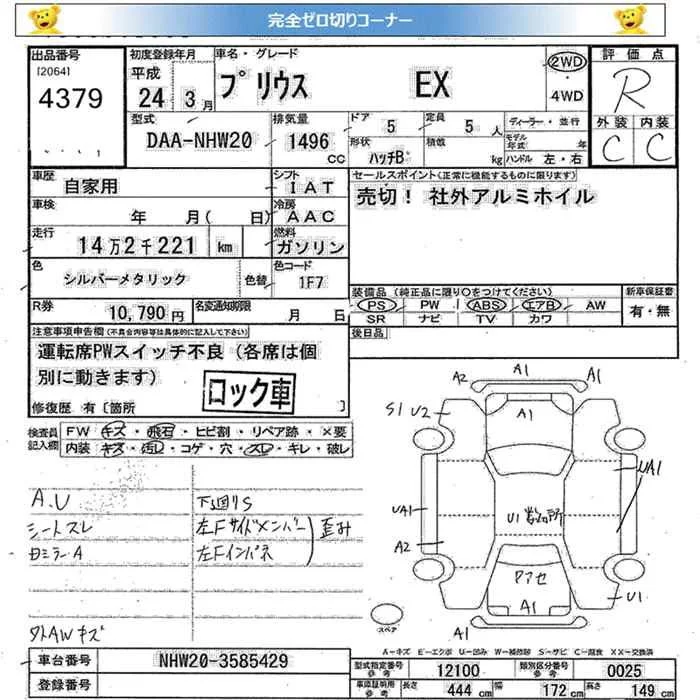 完全ゼロ切りコーナー
出品番号
[2064]
4379
初度登録年月
平成
24 3 月
車名・グレード
プリウス EX
2WD
・
4WD
評価点
R
外装 内装
C C
型式
DAA-NHW20
排気量
1496
CC
ドア 5
形状 ハッチB
定員 5 人
積載 kg
ディーラー・並行
モデル年式 年
ハンドル 左・右
車歴
自家用
シフト
IAT
車検
年 月( 日)
冷房
AAC
走行
14万2千221 km
燃料
ガソリン
色
シルバーメタリック
色替
色コード
1F7
R券
10,790 円
名変通知期限
月 日
セールスポイント(正常に機能するものに限ります)
売切! 社外アルミホイル
装備品 (純正品に限り○をつけてください)
PS PW ABS エアB AW
SR ナビ TV カワ
新車保証書
有・無
後日品
注意事項申告欄(不具合内容等は具体的に記入して下さい)
運転席PWスイッチ不良(各席は個
別に動きます)
ロック車
修復歴 有〔箇所 〕
検査員記入欄
FW キズ・飛石・ヒビ割・リペア跡・×要
内装 キズ・汚レ・コゲ・穴・スレ・キレ・破レ
A.U 下廻りS
シートスレ 左Fサイドメンバー
歪み
左Fインパネ
外AWキズ
A2 A1 A1
S1 U2 A1
UA1
UA1
U1 数カ所
A2
アフセ
A1
U1
A1
スペア
A−キズ E−エクボ U−凹み W−補修跡 S−サビ C−腐食 XX−交換済
車台番号
NHW20-3585429
登録番号
型式指定番号
参考
12100
類別区分番号
参考
0025
車庫証明用
参考
長さ 444 cm
幅 172 cm
高さ 149 cm